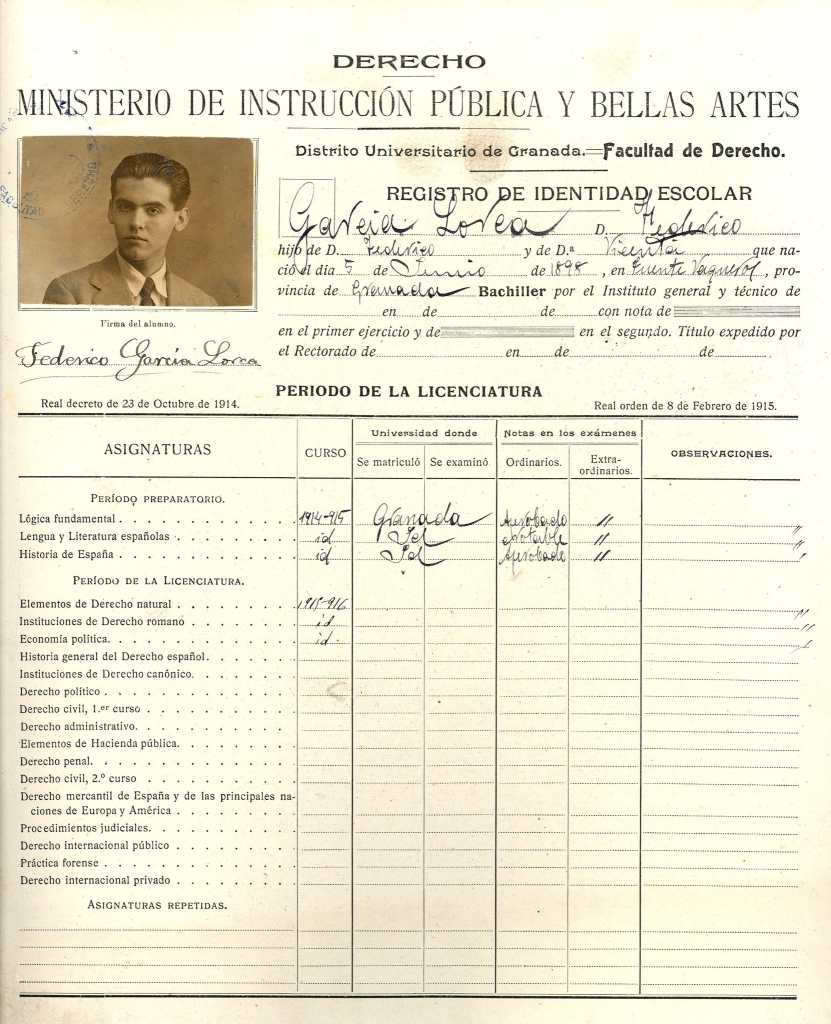 DERECHO
MINISTERIO DE INSTRUCCIÓN PÚBLICA Y BELLAS ARTES
Distrito Universitario de Granada.=Facultad de Derecho.
REGISTRO DE IDENTIDAD ESCOLAR
García Lorca D. Federico
hijo de D. Federico y de D.ª Vicenta que na-
ció el día 5 de Junio de 1898, en Fuente Vaqueros, pro-
vincia de Granada Bachiller por el Instituto general y técnico de
en de de con nota de
en el primer ejercicio y de en el segundo. Título expedido por
el Rectorado de en de de
Firma del alumno.
Federico García Lorca
PERIODO DE LA LICENCIATURA
Real decreto de 23 de Octubre de 1914. Real orden de 8 de Febrero de 1915.
ASIGNATURAS CURSO Universidad donde Notas en los exámenes OBSERVACIONES.
Se matriculó Se examinó Ordinarios. Extra-ordinarios.
PERÍODO PREPARATORIO.
Lógica fundamental 1914-915 Granada Aprobado "
Lengua y Literatura españolas id Id Notable "
Historia de España id Id Aprobado "
PERÍODO DE LA LICENCIATURA.
Elementos de Derecho natural 1915-916
Instituciones de Derecho romano id
Economía política. id.
Historia general del Derecho español.
Instituciones de Derecho canónico.
Derecho político
Derecho civil, 1.er curso
Derecho administrativo.
Elementos de Hacienda pública.
Derecho penal.
Derecho civil, 2.º curso
Derecho mercantil de España y de las principales na-
ciones de Europa y América
Procedimientos judiciales.
Derecho internacional público
Práctica forense
Derecho internacional privado
ASIGNATURAS REPETIDAS.